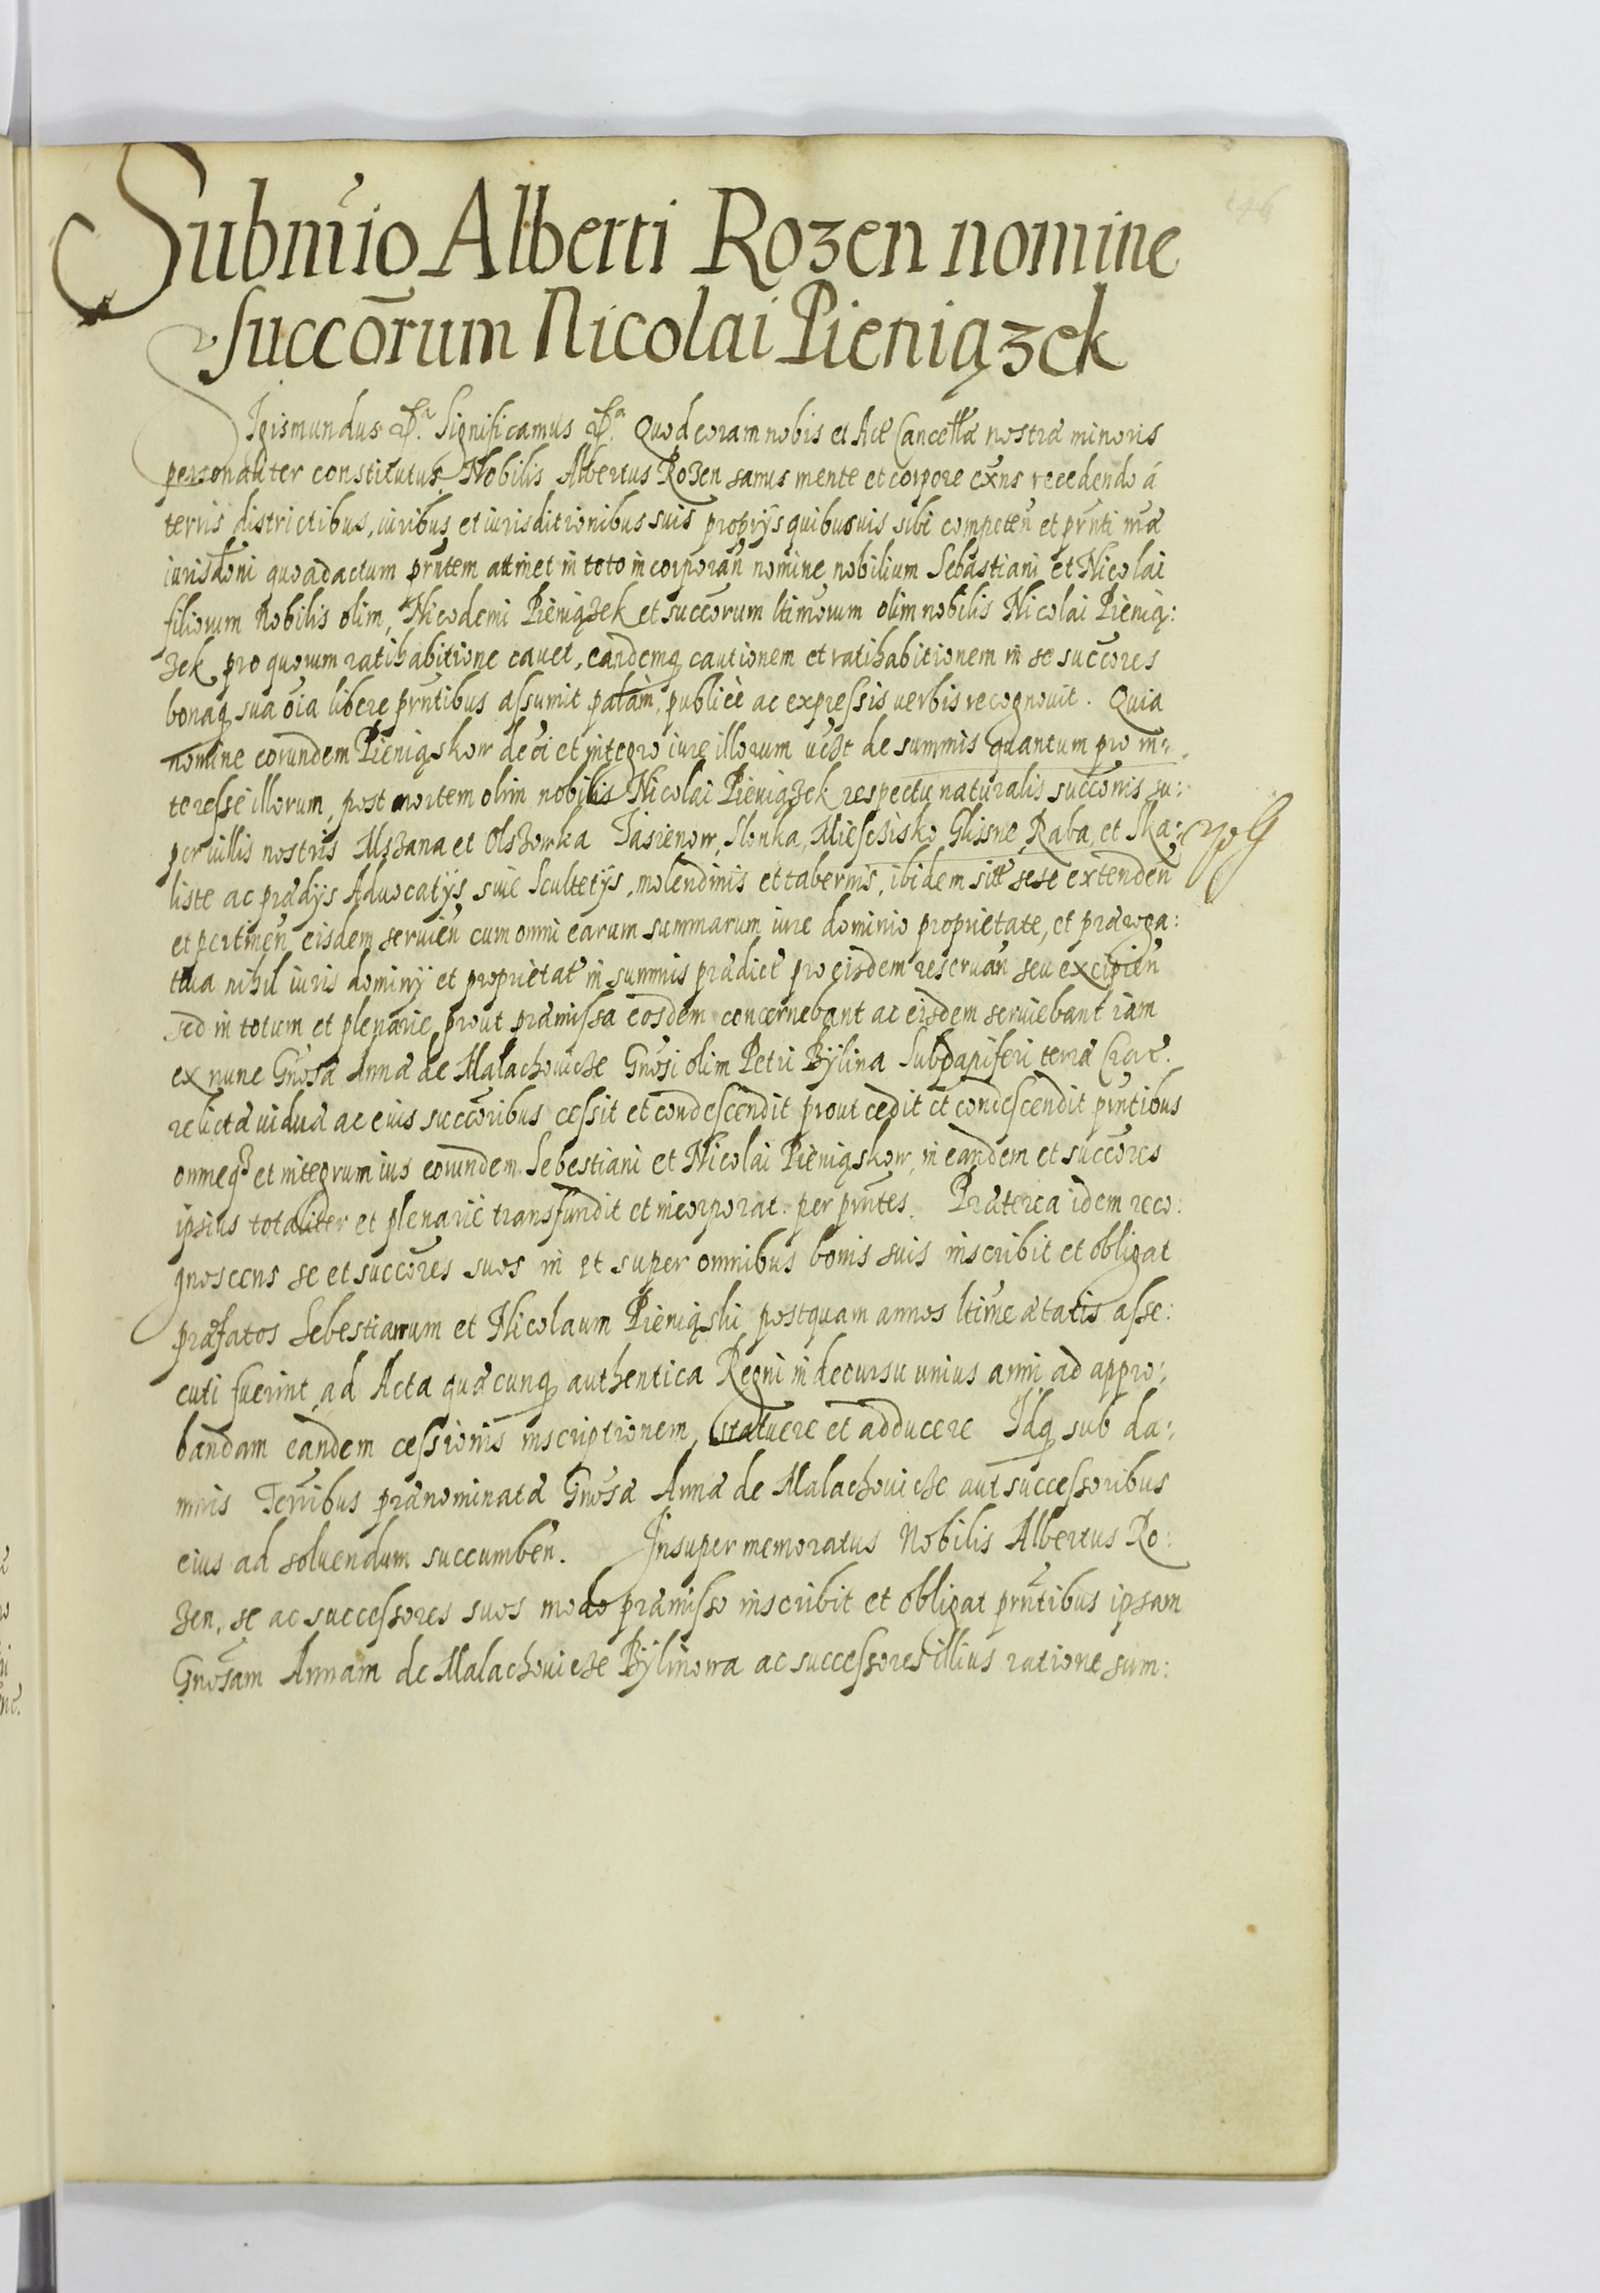 146
Submio Alberti Rozen nomine
succōrum Nicolai Pieniązek
Sigismundus &ᵃ. Significamus &ᵃ. Quod coram nobis et Act Cancellæ nostræ minoris
personaliter constitutus Nobilis Albertus Rozen sanus mente et corpore exns recedendo á
terris districtibus, iuribus et iurisditionibus suis proprijs quibusuis sibi competeñ et prñti nræ
iurisdoni quoad actum prñtem attinet in toto incorporañ nomine nobilium Sebastiani et Nicolai
filiorum Nobilis olim, Nicodemi Pieniązek et succōrum ltimorum olim nobilis Nicolai Pienią:
zek pro quorum ratihabitione cauet, eandemq cautionem et ratihabitionem in se succōres
bonaq sua oīa libere prñtibus assumit palàm, publicè ac expressis uerbis recognouit. Quia
nomine eorundem Pieniąskow de oī et integro iure illorum uczt de summis quantum pro in:
teresse illorum, post mortem olim nobilis Nicolai Pieniązek respectu naturalis succōnis su:
per uillis nostris Mszana et Olszowka Jasienow, Slonka, Miesczisko Glisne, Raba, et Ska:
liste ac prædijs Aduocatijs, siue Scultetijs, molendinis et tabernis, ibidem sitt sese extendeñ
et pertineñ eisdem seruieñ cum omni earum summarum iure dominio proprietate, et præroga:
tiua nihil iuris dominij et proprietat in summis prædict pro eisdem reseruañ seu excipieñ
sed in totum et plenarie, prout præmissa eosdem concernebant ac eisdem seruiebant iam
ex nunc Gnosæ Annæ de Malachowicze Gnosi olim Petri Bÿlina Subdapiferi terræ Crac.
relictæ uiduæ ac eius succōribus cessit et condescendit prout cedit et condescendit prñtibus
omneq et integrum ius eorundem Sebestiani et Nicolai Pieniąskow, in eandem et succōres
ipsius totaliter et plenarie transfundit et incorporat per prñtes. Præterea idem reco:
gnoscens se et succōres suos in et super omnibus bonis suis inscribit et obligat
præfatos Sebestianum et Nicolaum Pieniąski postquam annos ltimæ ætatis asse:
cuti fuerint, ad Acta quæcunq authentica Regni in decursu unius anni, ad appro:
bandam eandem cessionis inscriptionem, statuere et adducere Idq sub da:
mnis Terribus prænominatæ Gnosæ Annæ de Malachouicze aut successoribus
eius ad soluendum succumbeñ. Insuper memoratus Nobilis Albertus Ro:
zen, se ac successores suos modo præmisso inscribit et obligat prñtibus ipsam
Gnosam Annam de Malachouicze Bÿlinowa ac successores illius ratione sum: